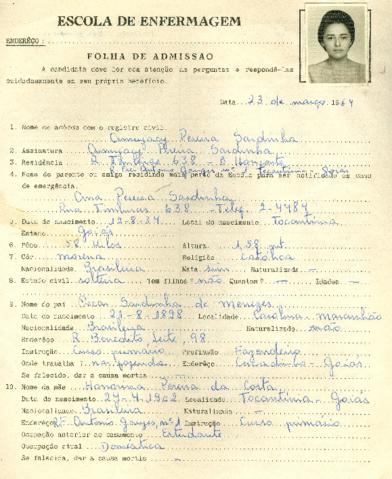 ESCOLA DE ENFERMAGEM
ENDERÊÇO:
FOLHA DE ADMISSÃO
A candidata deve ler com atenção as perguntas e respondê-las
cuidadosamente em seu próprio benefício.
Data 23 de março 1964
1. Nome de acôrdo com o registro civil
Pereira Sardinha
2. Assinatura Pereira Sardinha
3. Residência R. Timbiras 638 - B. Horizonte
R. Pio Antonio nº 1 Tocantínia - Goiás
4. Nome de parente ou amigo residindo mais perto da Escola para ser notificado em caso
de emergência.
Ana Pereira Sardinha
Rua Timbiras 638 - Telef. 2-4487
5. Data do nascimento 12-8-34 Local do nascimento Tocantínia
Estado Goiás
6. Pêso 58 kilos Altura 1,58 mt
7. Côr morena Religião católica
Nacionalidade Brasileira Nata sim Naturalizada -
8. Estado civil solteira tem filhos? não Quantos? - Idades -
9. Nome do pai Sardinha de Menezes
Data do nascimento 21-8-1898 Localidade Carolina - Maranhão
Nacionalidade Brasileira Naturalizado não
Enderêço R. Benedito Leite, 98
Instrução Curso primário Profissão Fazendeiro
Onde trabalha? na fazenda Enderêço - Goiás
Se falecido, dar a causa mortis -
10. Nome da mãe Pereira da Costa
Data do nascimento 27-4-1902 Localidade Tocantínia - Goiás
Nacionalidade Brasileira Naturalizada -
Enderêço Antonio nº 1 Instrução Curso primário
Ocupação anterior ao casamento Estudante
Ocupação atual Doméstica
Se falecida, dar a causa mortis -